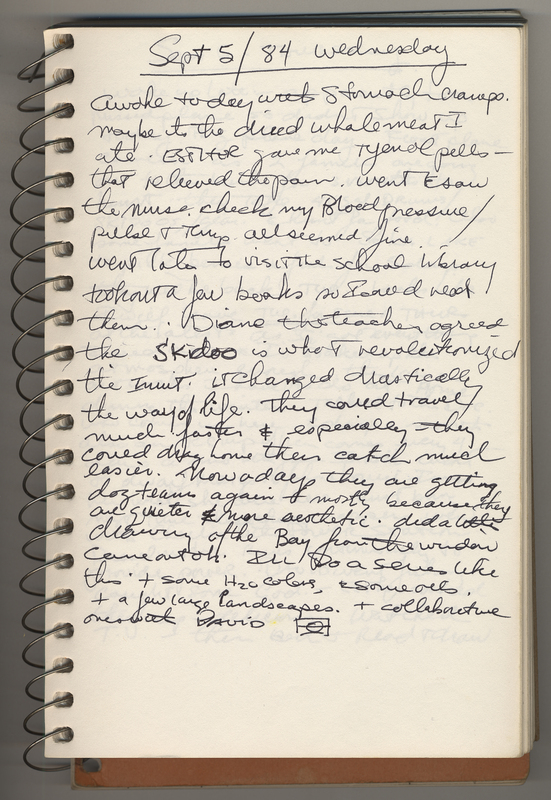 Sept 5/84 wednesday
awoke today with Stomach cramps.
maybe its the dried whalemeat I
ate. ESTHER gave me Tyenol pells —
that relieved the pain. went & saw
the nurse. check my Blood pressure/
pulse & Temp. all seemed fine.
went later to visit the school library
tookout a few books so I could read
them. Diane the teacher agreed
the SKidoo is what revolutionized
the Inuit. it changed drastically
the way of life. They could travel/
much faster & especially they
could drag home their catch much
easier. Nowadays they are getting
dogteams again & mostly because they
are quieter & more aesthetic. did a
drawing of the Bay from the window
came out ok. I'll do a series like
this + some H2O colors, & some oils.
+ a few large landscapes. + collaborative
ones with DAVID